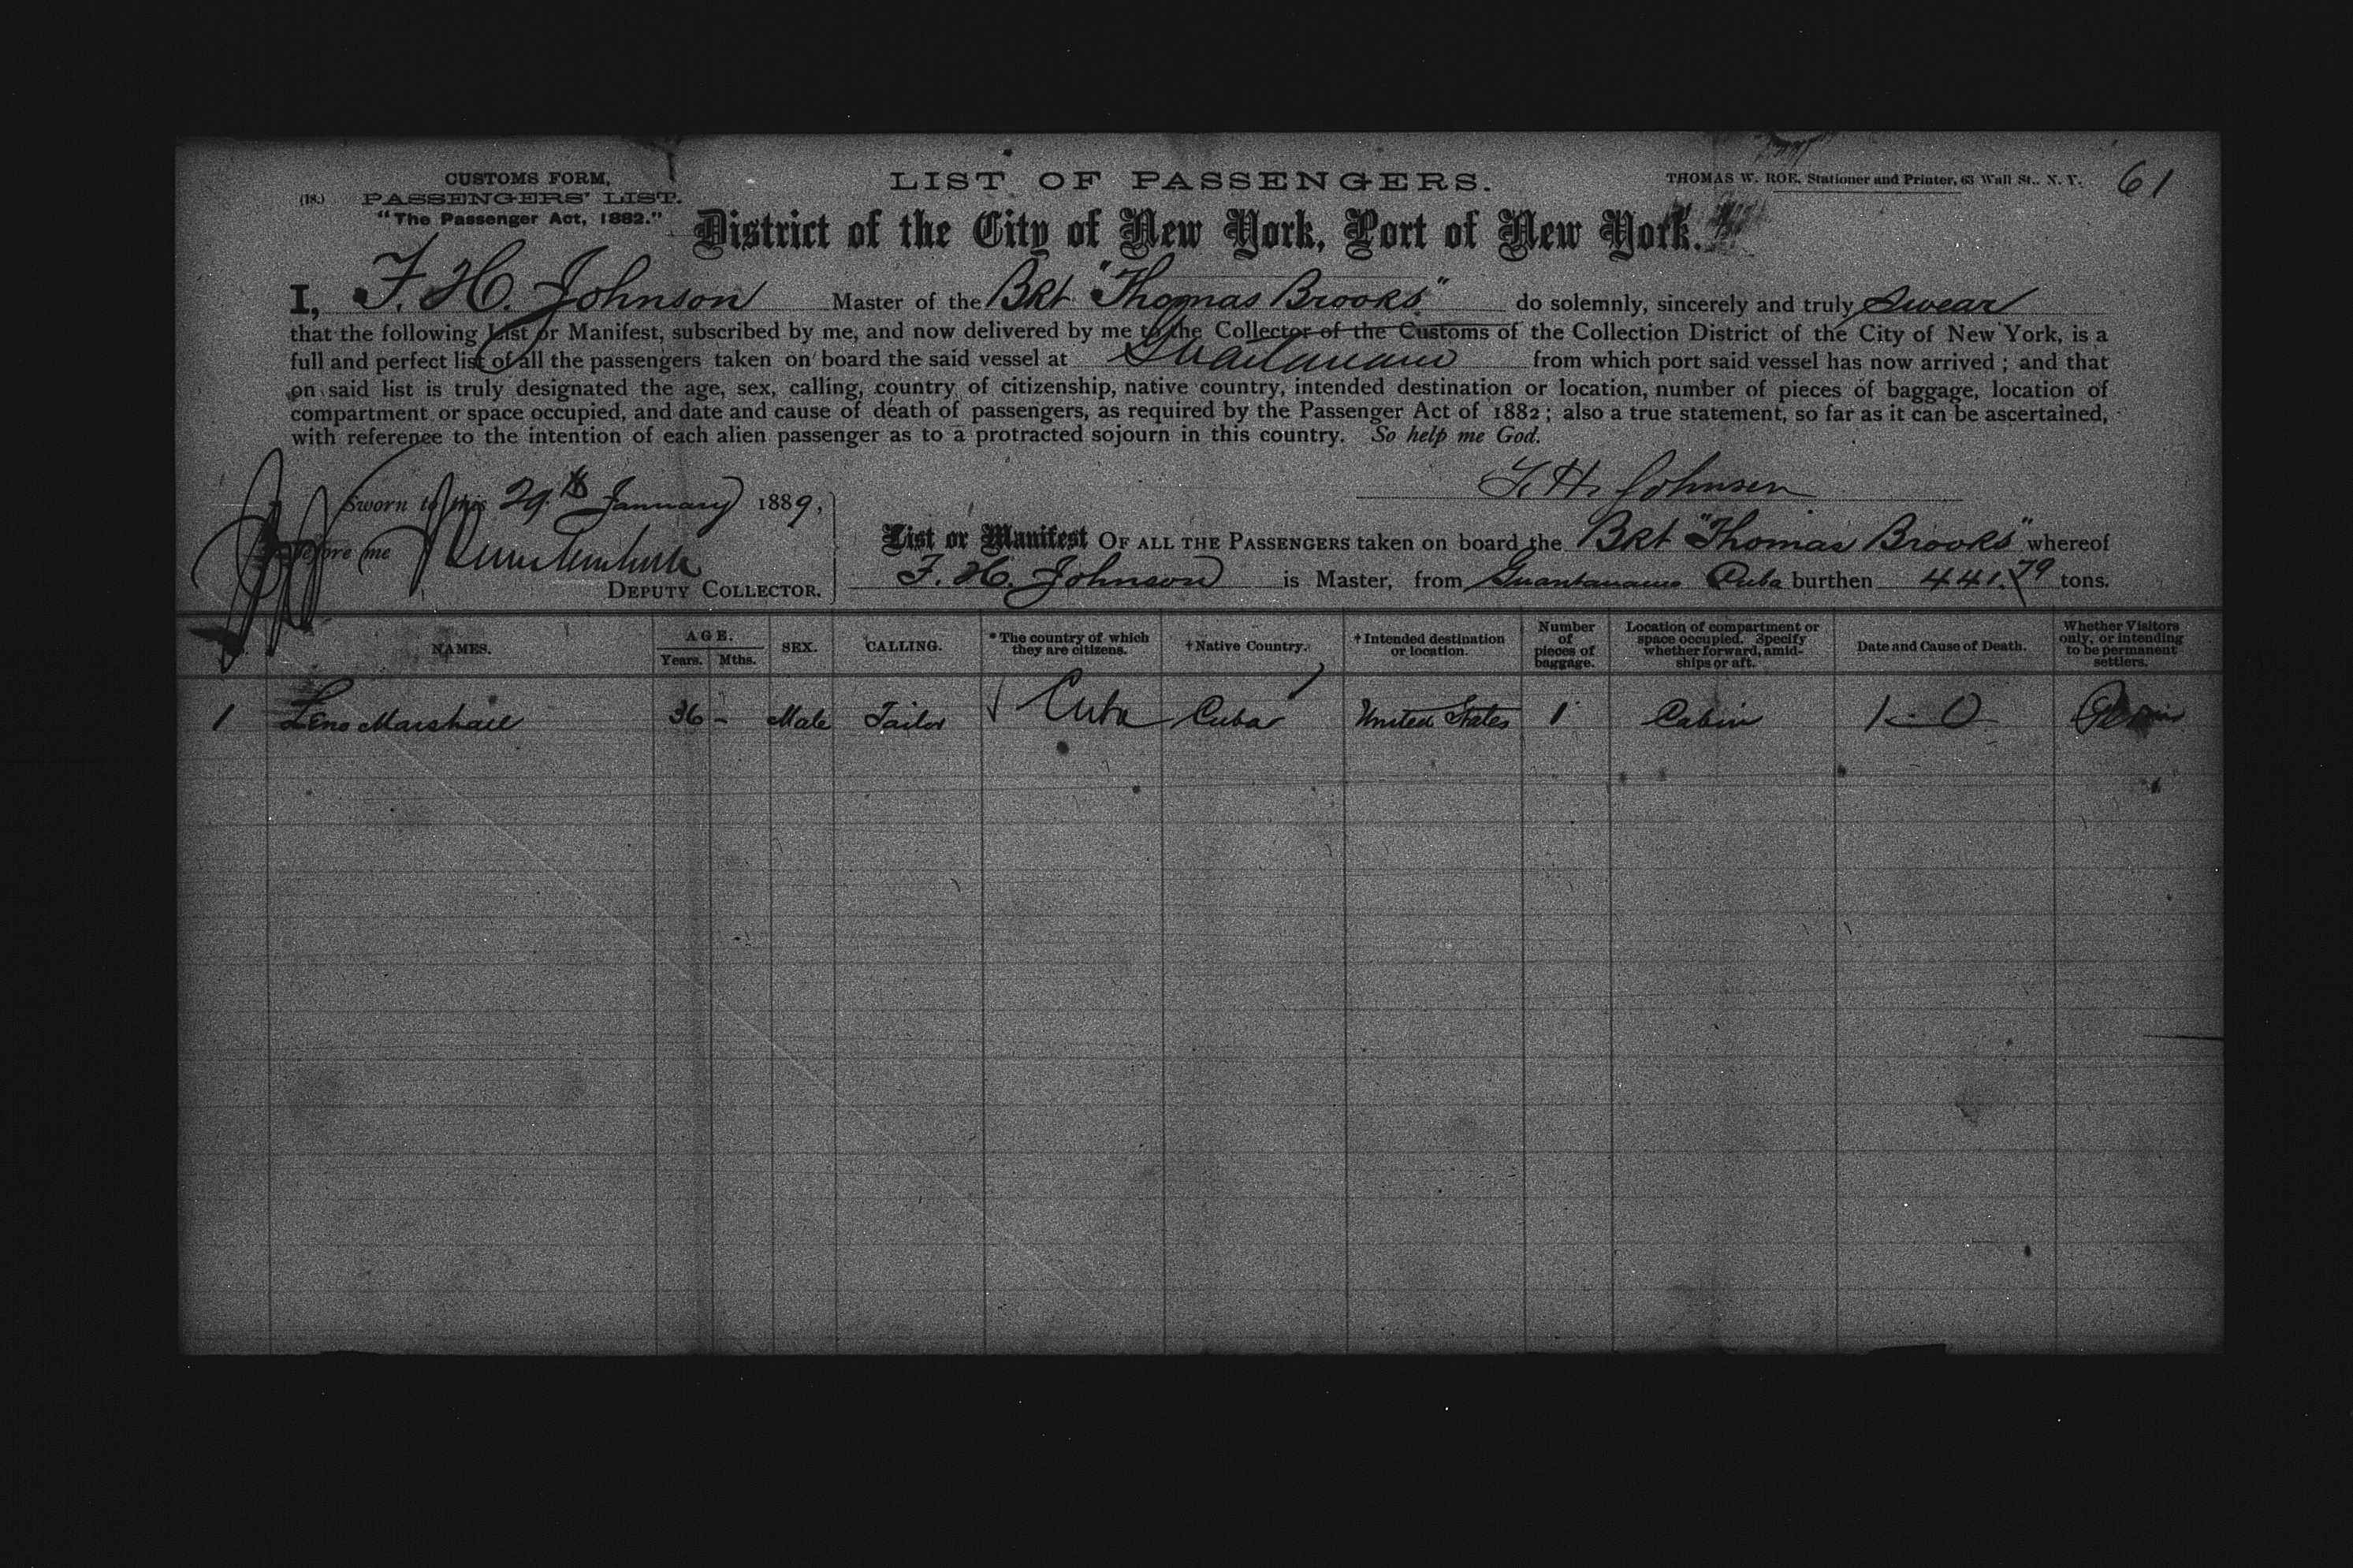 CUSTOMS FORM,
(18.) PASSENGERS' LIST.
"The Passenger Act, 1882."
LIST OF PASSENGERS.
THOMAS W. ROE, Stationer and Printer, 63 Wall St., N. Y.
61
District of the City of New York, Port of New York.
I, F. H. Johnson Master of the Bkt "Thomas Brooks" do solemnly, sincerely and truly swear
that the following List or Manifest, subscribed by me, and now delivered by me to the Collector of the Customs of the Collection District of the City of New York, is a
full and perfect list of all the passengers taken on board the said vessel at from which port said vessel has now arrived; and that
on said list is truly designated the age, sex, calling, country of citizenship, native country, intended destination or location, number of pieces of baggage, location of
compartment or space occupied, and date and cause of death of passengers, as required by the Passenger Act of 1882; also a true statement, so far as it can be ascertained,
with reference to the intention of each alien passenger as to a protracted sojourn in this country. So help me God.
F. H. Johnson
Sworn to this 29th January 1889,
before me
DEPUTY COLLECTOR.
List or Manifest OF ALL THE PASSENGERS taken on board the Bkt "Thomas Brooks" whereof
F. H. Johnson is Master, from Guantanamo Cuba burthen 441.79 tons.
NAMES.
AGE.
Years. Mths.
SEX.
CALLING.
* The country of which
they are citizens.
† Native Country.
† Intended destination
or location.
Number
of
pieces of
baggage.
Location of compartment or
space occupied. Specify
whether forward, amid-
ships or aft.
Date and Cause of Death.
Whether Visitors
only, or intending
to be permanent
settlers.
1 Leno Marshall 36 - Male Tailor Cuba Cuba United States 1 Cabin 1-0